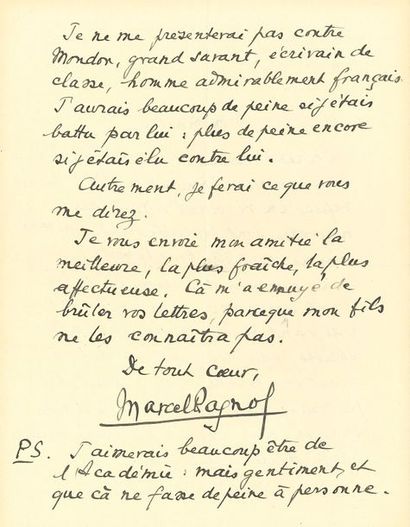 Je ne me présenterai pas contre
Mondor, grand savant, écrivain de
classe, homme admirablement français.
J'aurais beaucoup de peine si j'étais
battu par lui : plus de peine encore
si j'étais élu contre lui.
Autrement, je ferai ce que vous
me direz.
Je vous envoie mon amitié la
meilleure, la plus fraîche, la plus
affectueuse. Cà m'a ennuyé de
brûler vos lettres, parceque mon fils
ne les connaîtra pas.
De tout cœur,
Marcel Pagnol
PS. J'aimerais beaucoup être de
l'Académie : mais gentiment, et
que cà ne fasse de peine à personne.